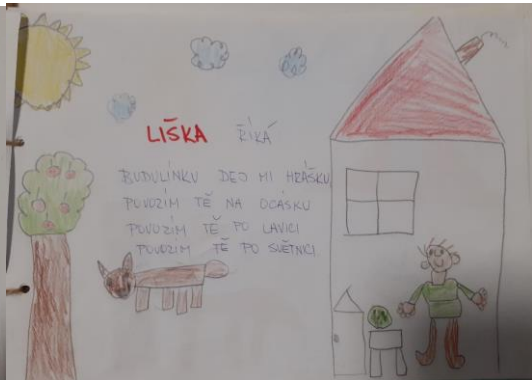 LIŠKA ŘÍKÁ
BUDULÍNKU DEJ MI HRÁŠKU
POVOZÍM TĚ NA OCÁSKU
POVOZÍM TĚ PO LAVICI
POVOZÍM TĚ PO SVĚTNICI